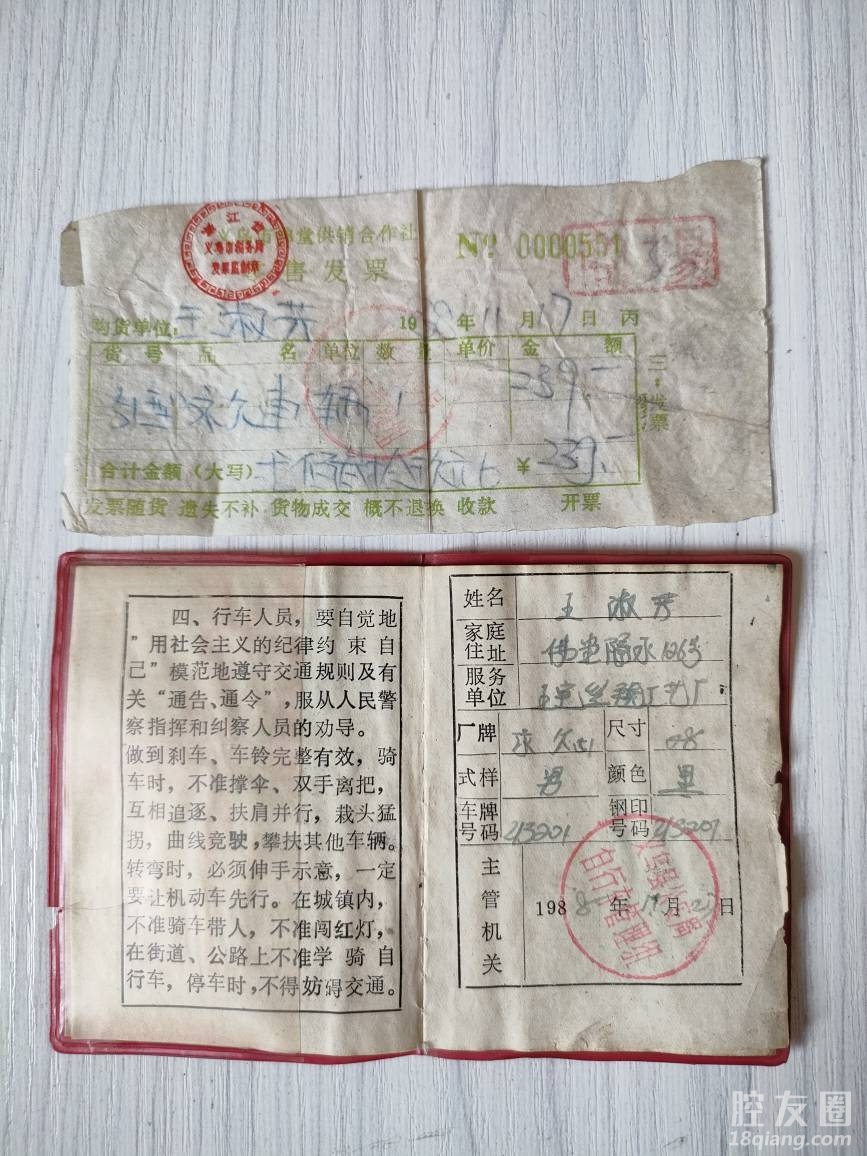 浙江省
义乌市税务局
发票监制章
义乌市佛堂供销合作社
售发票
№ 0000551
购货单位: 王淑芳 19 年 11 月 17 日 丙
货号 品名 单位 数量 单价 金额
永久车 辆 1 239.—
合计金额(大写) ¥ 239.—
三:发票
发票随货 遗失不补 货物成交 概不退换 收款 开票
四、行车人员,要自觉地
"用社会主义的纪律约束自
己"模范地遵守交通规则及有
关"通告、通令",服从人民警
察指挥和纠察人员的劝导。
做到刹车、车铃完整有效,骑
车时,不准撑伞、双手离把,
互相追逐、扶肩并行,栽头猛
拐,曲线竞驶,攀扶其他车辆。
转弯时,必须伸手示意,一定
要让机动车先行。在城镇内,
不准骑车带人,不准闯红灯,
在街道、公路上不准学骑自
行车,停车时,不得妨碍交通。
姓名 王淑芳
家庭住址 佛堂 126号
服务单位
厂牌 永久51 尺寸 28
式样 男 颜色 黑
车牌号码 43201 钢印号码 43201
主管机关 1988年11月21日
自行车管理所
腔友圈
18qiang.com